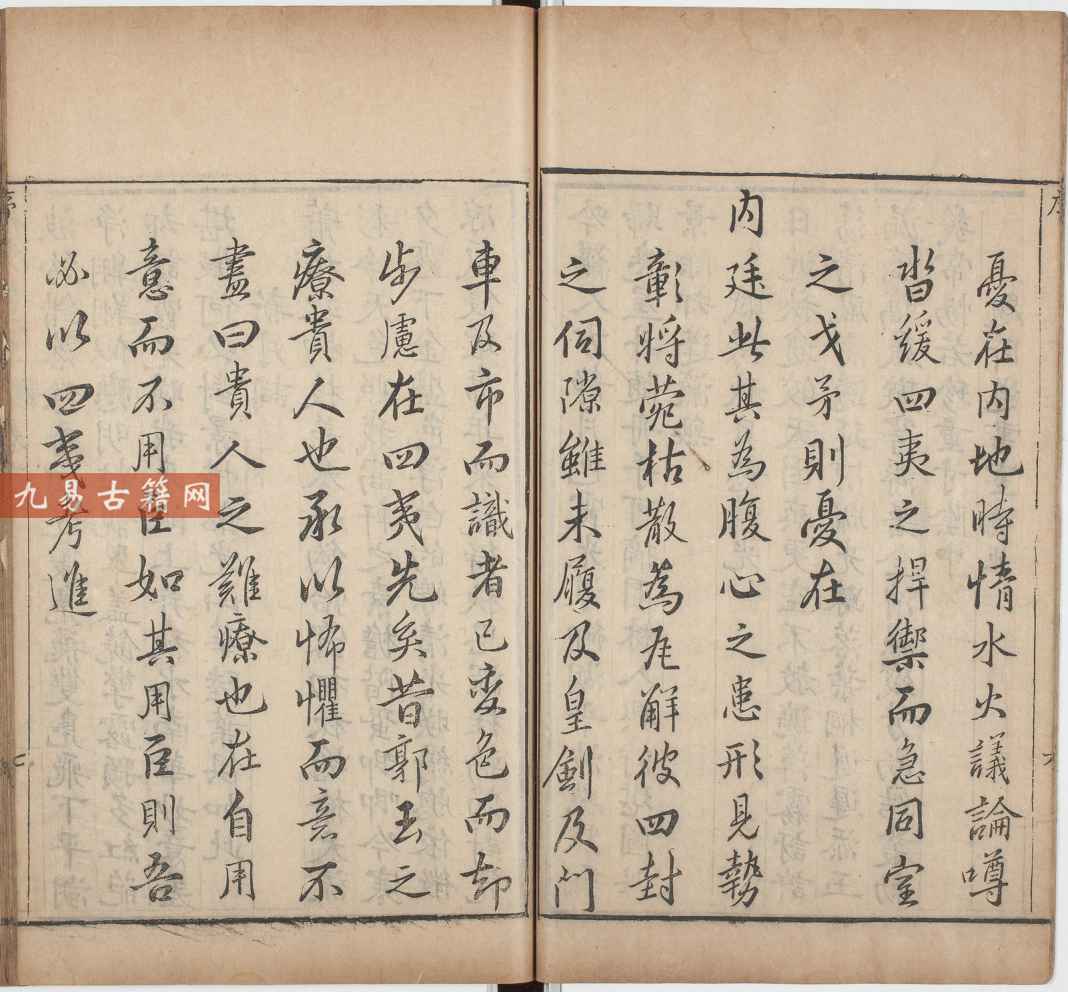 憂在内地時情水火議論噂
沓緩四夷之捍禦而急同室
之戈矛則憂在
内廷此其為腹心之患形見勢
彰將菀枯散為瓦解彼四封
之伺隙雖未履及皇劍及門
車及市而識者已變色而却
步慮在四夷先矣昔郭玉之
療貴人也承以怖懼而意不
盡曰貴人之難療也在自用
意而不用臣如其用臣則吾
必以四夷考進
九易古籍网